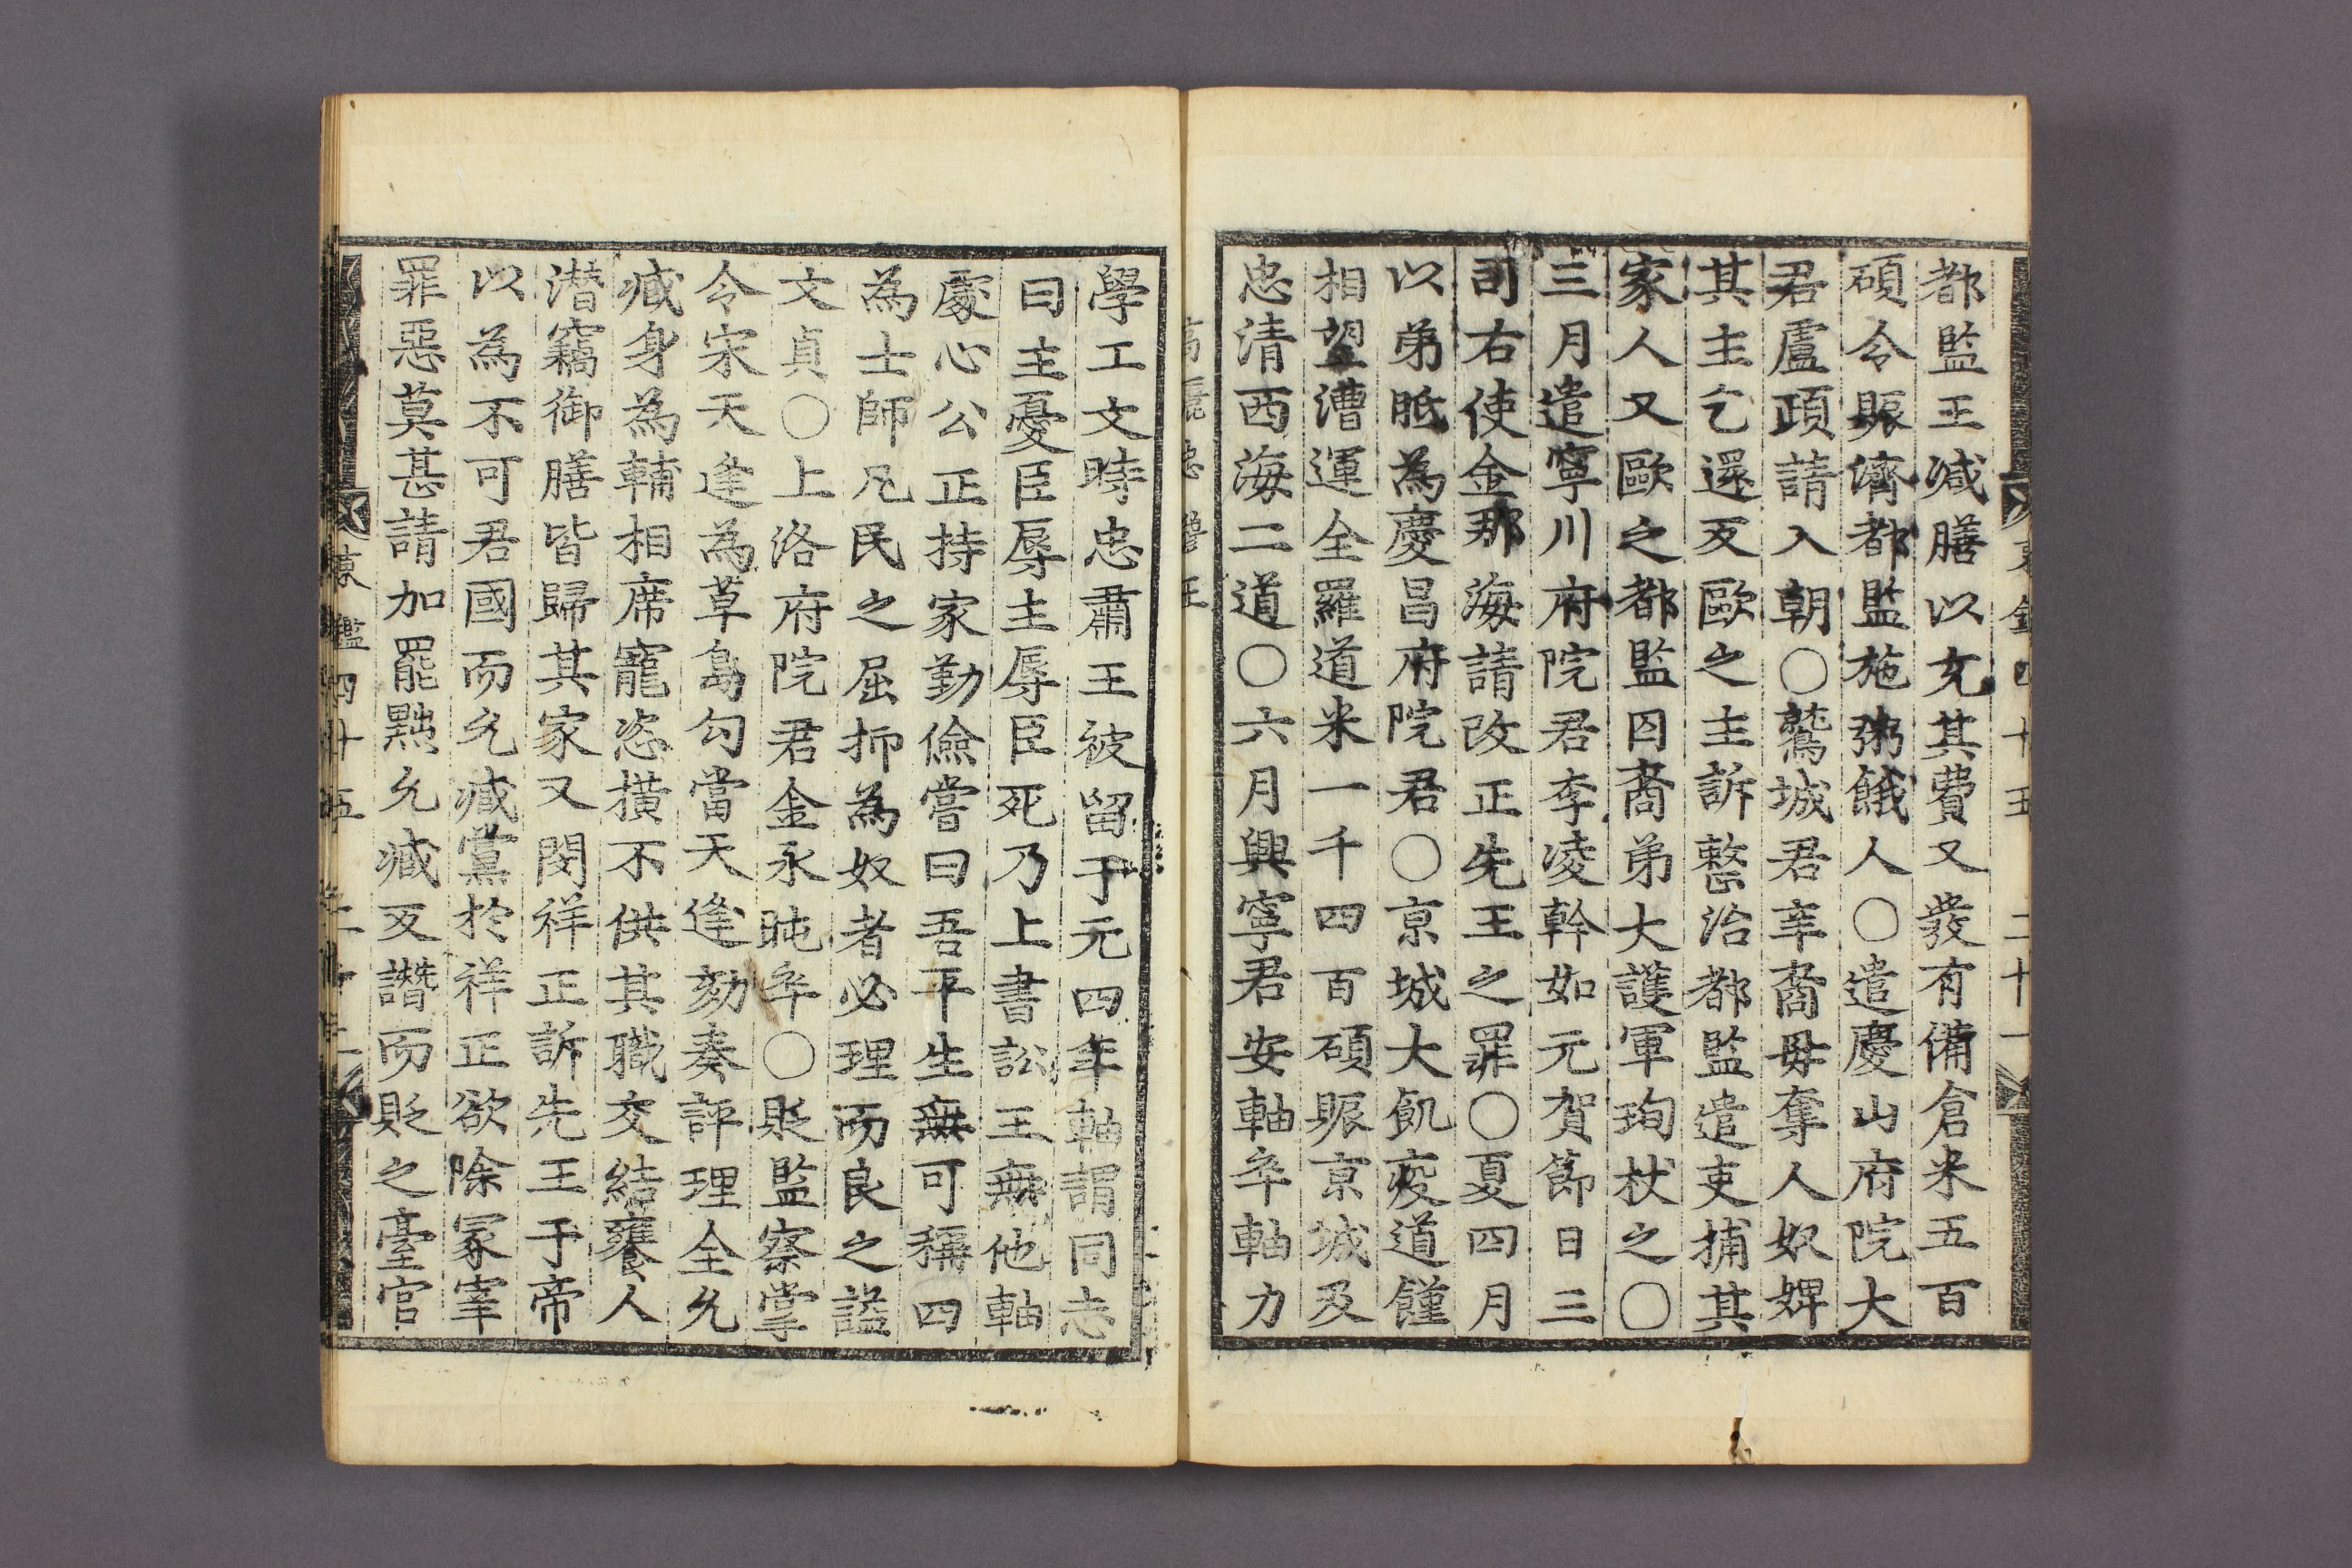 都監王减膳以充其費又發有備倉米五百
碩令賑濟都監施粥餓人○遣慶山府院大
君盧頙請入朝○鷲城君辛裔毋奪人奴婢
其主乞還歐之主訴整治都監遣吏捕其
家人又歐之都監囚裔弟大護軍珣杖之○
三月遣寧川府院君李凌幹如元賀節日三
司右使金那海請改正先王之罪○夏四月
以弟胝為慶昌府院君○京城大飢疫道饉
相望漕運全羅道米一千四百碩賑京城及
忠清西海二道○六月興寧君安軸卒軸力
高麗忠穆王
學工文時忠肅王被留于元四年軸謂同志
曰主憂臣辱主辱臣死乃上書訟王無他軸
處心公正持家勤儉嘗曰吾平生無可稱四
為士師凡民之屈抑為奴者必理而良之謚
文貞○上洛府院君金永旽卒○貶監察掌
令宋天逢為草島勾當天逢劾奏評理全允
臧身為輔相席寵恣橫不供其職交結饔人
潜竊御膳皆歸其家又閔祥正訴先王于帝
以為不可君國而允臧黨於祥正欲除冢宰
罪惡莫甚請加罷黜允臧反譖而貶之臺官
東鑑四十五